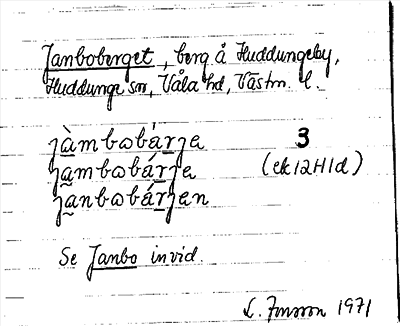 Janboberget, berg å Huddungeby,
Huddunge sn, Våla hd, Västm. l.
jàmbωbárje 3
jambωbárje (ek12H1d)
janbωbárjen
Se Janbo invid.
1971